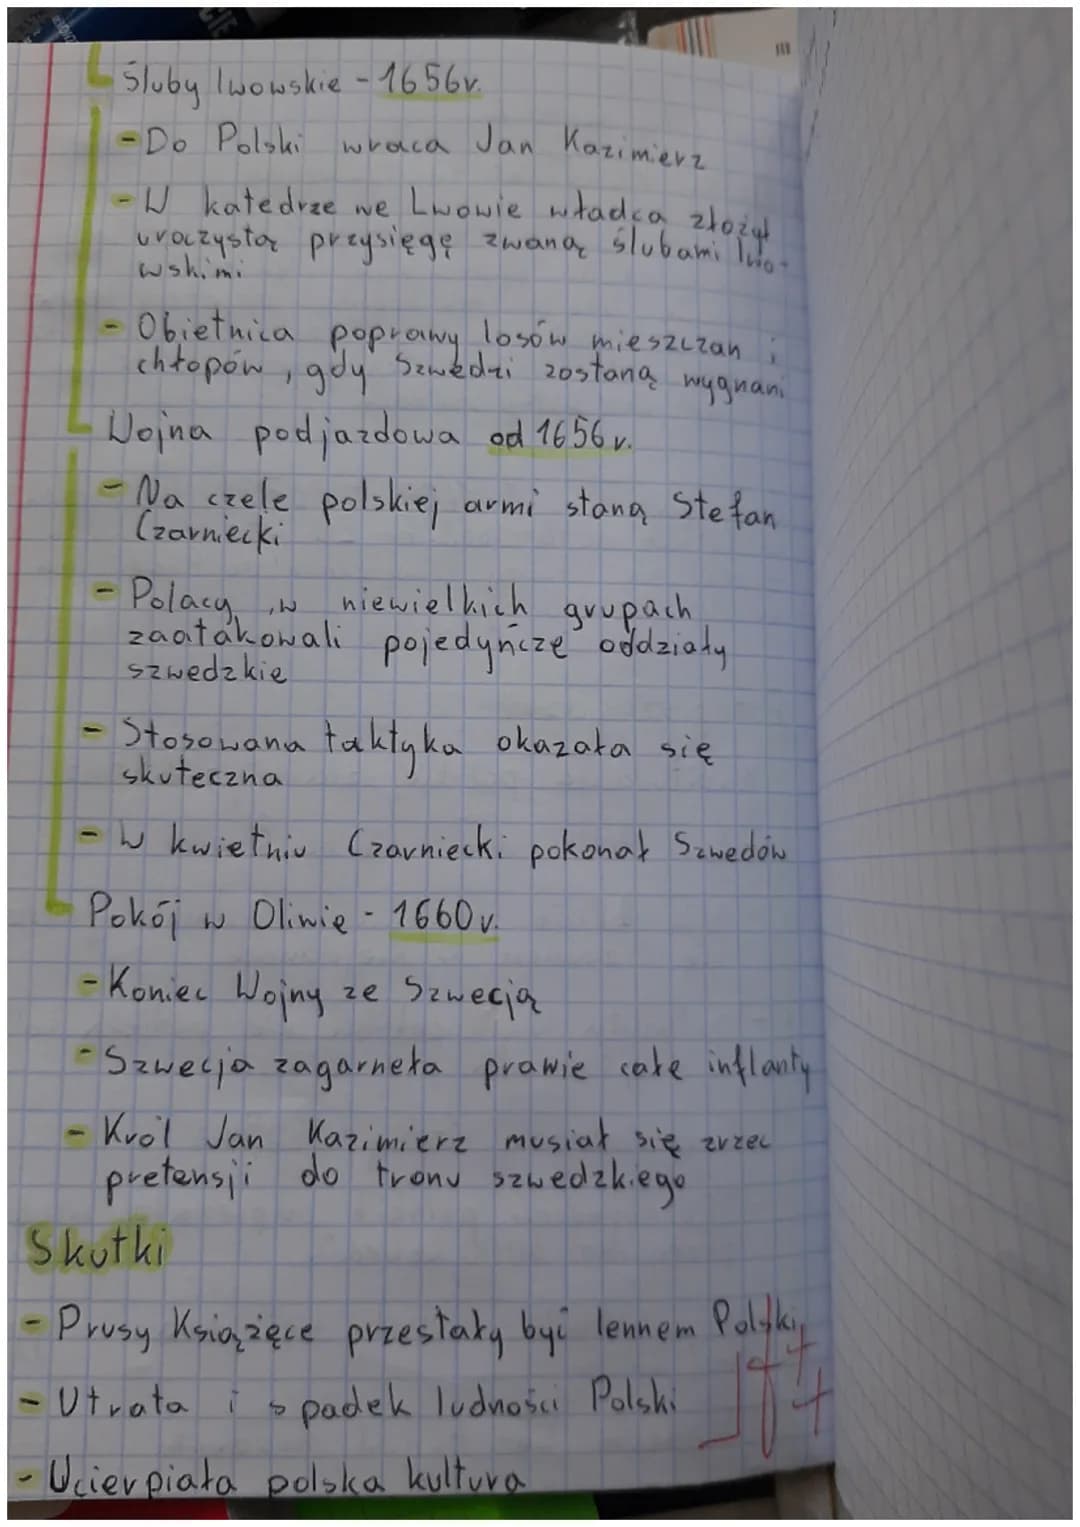 Śluby lwowskie - 1656r.
- Do Polski wraca Jan Kazimierz
- W katedrze we Lwowie władca złożył
uroczystą przysięgę zwaną ślubami lwo-
wskimi
- Obietnica poprawy losów mieszczan i
chłopów, gdy Szwedzi zostaną wygnani
Wojna podjazdowa od 1656 r.
- Na czele polskiej armi staną Stefan
Czarniecki
- Polacy, w niewielkich grupach
zaatakowali pojedyńcze oddziały
szwedzkie
- Stosowana taktyka okazała się
skuteczna
- W kwietniu Czarniecki pokonał Szwedów
Pokój w Oliwie - 1660 r.
- Koniec Wojny ze Szwecją
- Szwecja zagarneła prawie całe inflanty
- Król Jan Kazimierz musiał się zrzec
pretensji do tronu szwedzkiego
Skutki
- Prusy Książęce przestały być lennem Polski,
- Utrata i spadek ludności Polski
- Ucierpiała polska kultura